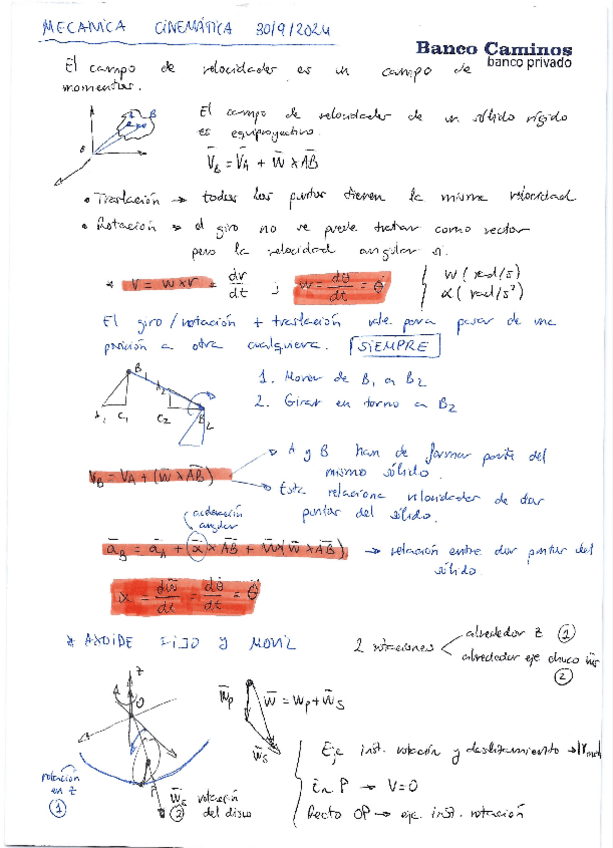 MECANICA CINEMÁTICA 30/9/2024
Banco Caminos
banco privado
El campo de velocidades es un campo de
momentos.
El campo de velocidades de un sólido rígido
es equiproyectivo.
V̄_B = V̄_A + W̄ × ĀB̄
• Traslación → todos los puntos tienen la misma velocidad
• Rotación → el giro no se puede tratar como vector
pero la velocidad angular sí.
* V = W × r = dr/dt ; W = dθ/dt = θ̇
W (rad/s)
α (rad/s²)
El giro/rotación + traslación vale para pasar de una
posición a otra cualquiera. SIEMPRE
1. Mover de B₁ a B₂
2. Girar en torno a B₂
A₁ C₁ B₁ C₂ B₂
V_B = V_A + (W̄ × ĀB̄)
A y B han de formar parte del
mismo sólido.
Esta relaciona velocidades de dos
puntos del sólido.
aceleración
angular
ā_B = ā_A + α × ĀB̄ + W̄(W̄ × ĀB̄) → relación entre dos puntos del
sólido
α = dW̄/dt = dθ̇/dt = θ̈
* AXOIDE FIJO Y MOVIL
2 rotaciones
alrededor z ①
alrededor eje chuco w̄s
②
z
O
P
W̄p W̄ = Wp + W̄s
W̄s
rotación
en z
①
W̄s rotación
② del disco
Eje inst. rotación y deslizamiento → |V mín
En P → V=0
Recto OP → eje inst. rotación